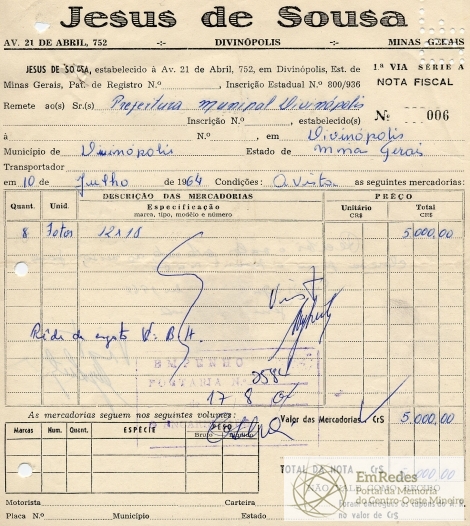 Jesus de Sousa
AV. 21 DE ABRIL, 752 -:- DIVINÓPOLIS -:- MINAS GERAIS
JESUS DE SOUSA, estabelecido à Av. 21 de Abril, 752, em Divinópolis, Est. de
Minas Gerais, Pat. de Registro N.º Inscrição Estadual N.º 800/936
1.ª VIA SÉRIE A
NOTA FISCAL
Remete ao(s) Sr.(s) Prefeitura Municipal Divinópolis
Nº 006
Inscrição N.º , estabelecido(s)
à N.º , em Divinópolis
Município de Divinópolis Estado de Minas Gerais
Transportador
em 10 de Julho de 1964 Condições: A vista as seguintes mercadorias:
Quant. Unid. DESCRIÇÃO DAS MERCADORIAS PREÇO
Especificação Unitário Total
marca, tipo, modêlo e número CR$ CR$
8 Fotos 12x18 5.000,00
Visto
V. B. H.
EMPENHO
PORTARIA
2584
17 8
As mercadorias seguem nos seguintes volumes:
Valor das Mercadorias Cr$ 5.000,00
Marcas Num. Quant. ESPÉCIE PÊSO
Bruto Líquido
TOTAL DA NOTA Cr$ 5.000,00
EmRedes
Portal da Memória
do Centro-Oeste Mineiro
Motorista Carteira
no valor de Cr$
Placa N.º Município Estado